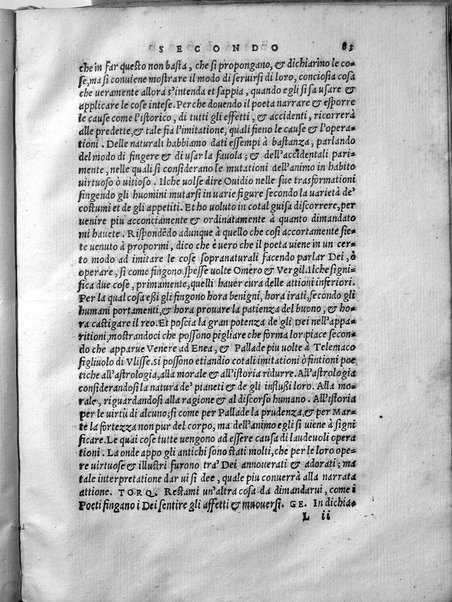 SECONDO 83
che in far questo non basta, che si propongano, & dichiarino le co-
se, ma si conviene mostrare il modo di seruirsi di loro, conciosia cosa
che veramente allora s'intenda et sappia, quando egli si sa usare &
applicare le cose intese. Perche douendo il poeta narrare & esporre
le cause come l'istorico, di tutti gli effetti, & accidenti, ricorrerà
alle predette, & tale fia l'imitatione, quali fieno le cause & l'opera-
tioni. Delle naturali habbiamo dati essempi à bastanza, parlando
del modo di fingere & di usar la fauola; & dell'accidentali pari-
mente, nelle quali si considerano le mutationi dell'animo in habito
virtuoso ò uitioso. Ilche uolse dire Ouidio nelle sue trasformationi
fingendo gli huomini mutarsi in uarie figure secondo la uarietà de'
costumi et de gli appetiti. Et ho uoluto in cotal guisa discorrere, per
uenire piu acconciamente & ordinatamente à quanto dimandato
mi hauete. Rispondēdo adunque à quello che cosi accortamente sie-
te uenuto à propormi, dico che è uero che il poeta uiene in un cer-
to modo ad imitare le cose sopranaturali facendo parlar Dei, ò
operare, si come fingono spesse uolte Omero & Vergil. Ilche signi-
fica due cose, primamente, quelli hauer cura delle attioni inferiori.
Per la qual cosa essi gli fingono hora benigni, hora irati, secondo gli
humani portamenti, & hora prouare la patienza del buono, & ho
ra castigare il reo. Et poscia la gran potenza de gli Dei nell'appa-
ritioni, mostrandoci che possono pigliare che forma lor piace: secon
do che apparue Venere ad Enea, & Pallade piu uolte à Telemaco
figliuolo di Vlisse. Si possono etiandio cotali imitationi ò fintioni poe
tiche all'astrologia, alla morale & all'istoria ridurre. All'astrologia
considerandosi la natura de' pianeti & de gli influssi loro. Alla mo-
rale, riguardandosi alla ragione & al discorso humano. All'istoria
per le virtù di alcuno; si come per Pallade la prudenza, & per Mar
te la fortezza non pur del corpo, ma dell'animo egli si uiene à signi
ficare. Le quai cose tutte uengono ad essere causa di laudeuoli opera
tioni. La onde appo gli antichi sono stati molti, che per le loro ope-
re uirtuose & illustri furono tra' Dei annouerati & adorati; ma
tale interpretatione dar ui si dee, quale piu conuerrà alla narrata
attione. TORQ. Restami un'altra cosa da dimandarui, come i
Poeti fingano i Dei sentire gli affetti & muouersi. GE. In dichia-
L ii